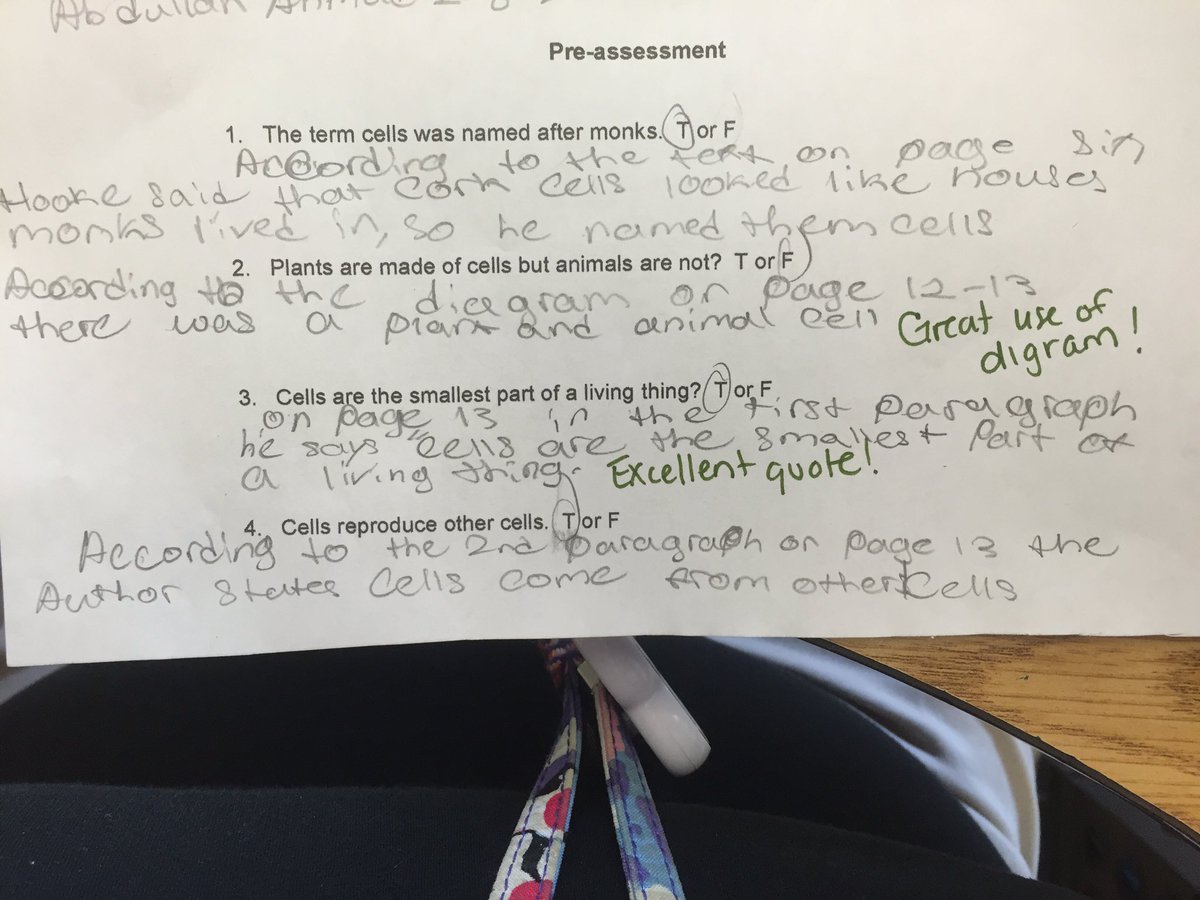 Abdullah
Pre-assessment
1. The term cells was named after monks. T or F
According to the text, on page six
Hooke said that cork cells looked like houses
monks lived in, so he named them cells
2. Plants are made of cells but animals are not? T or F
According to the diagram on page 12-13
there was a plant and animal cell
Great use of
digram!
3. Cells are the smallest part of a living thing? T or F
on page 13 in the first paragraph
he says "cells are the smallest part of
a living thing.
Excellent quote!
4. Cells reproduce other cells. T or F
According to the 2nd paragraph on page 13 the
Author states cells come from other cells